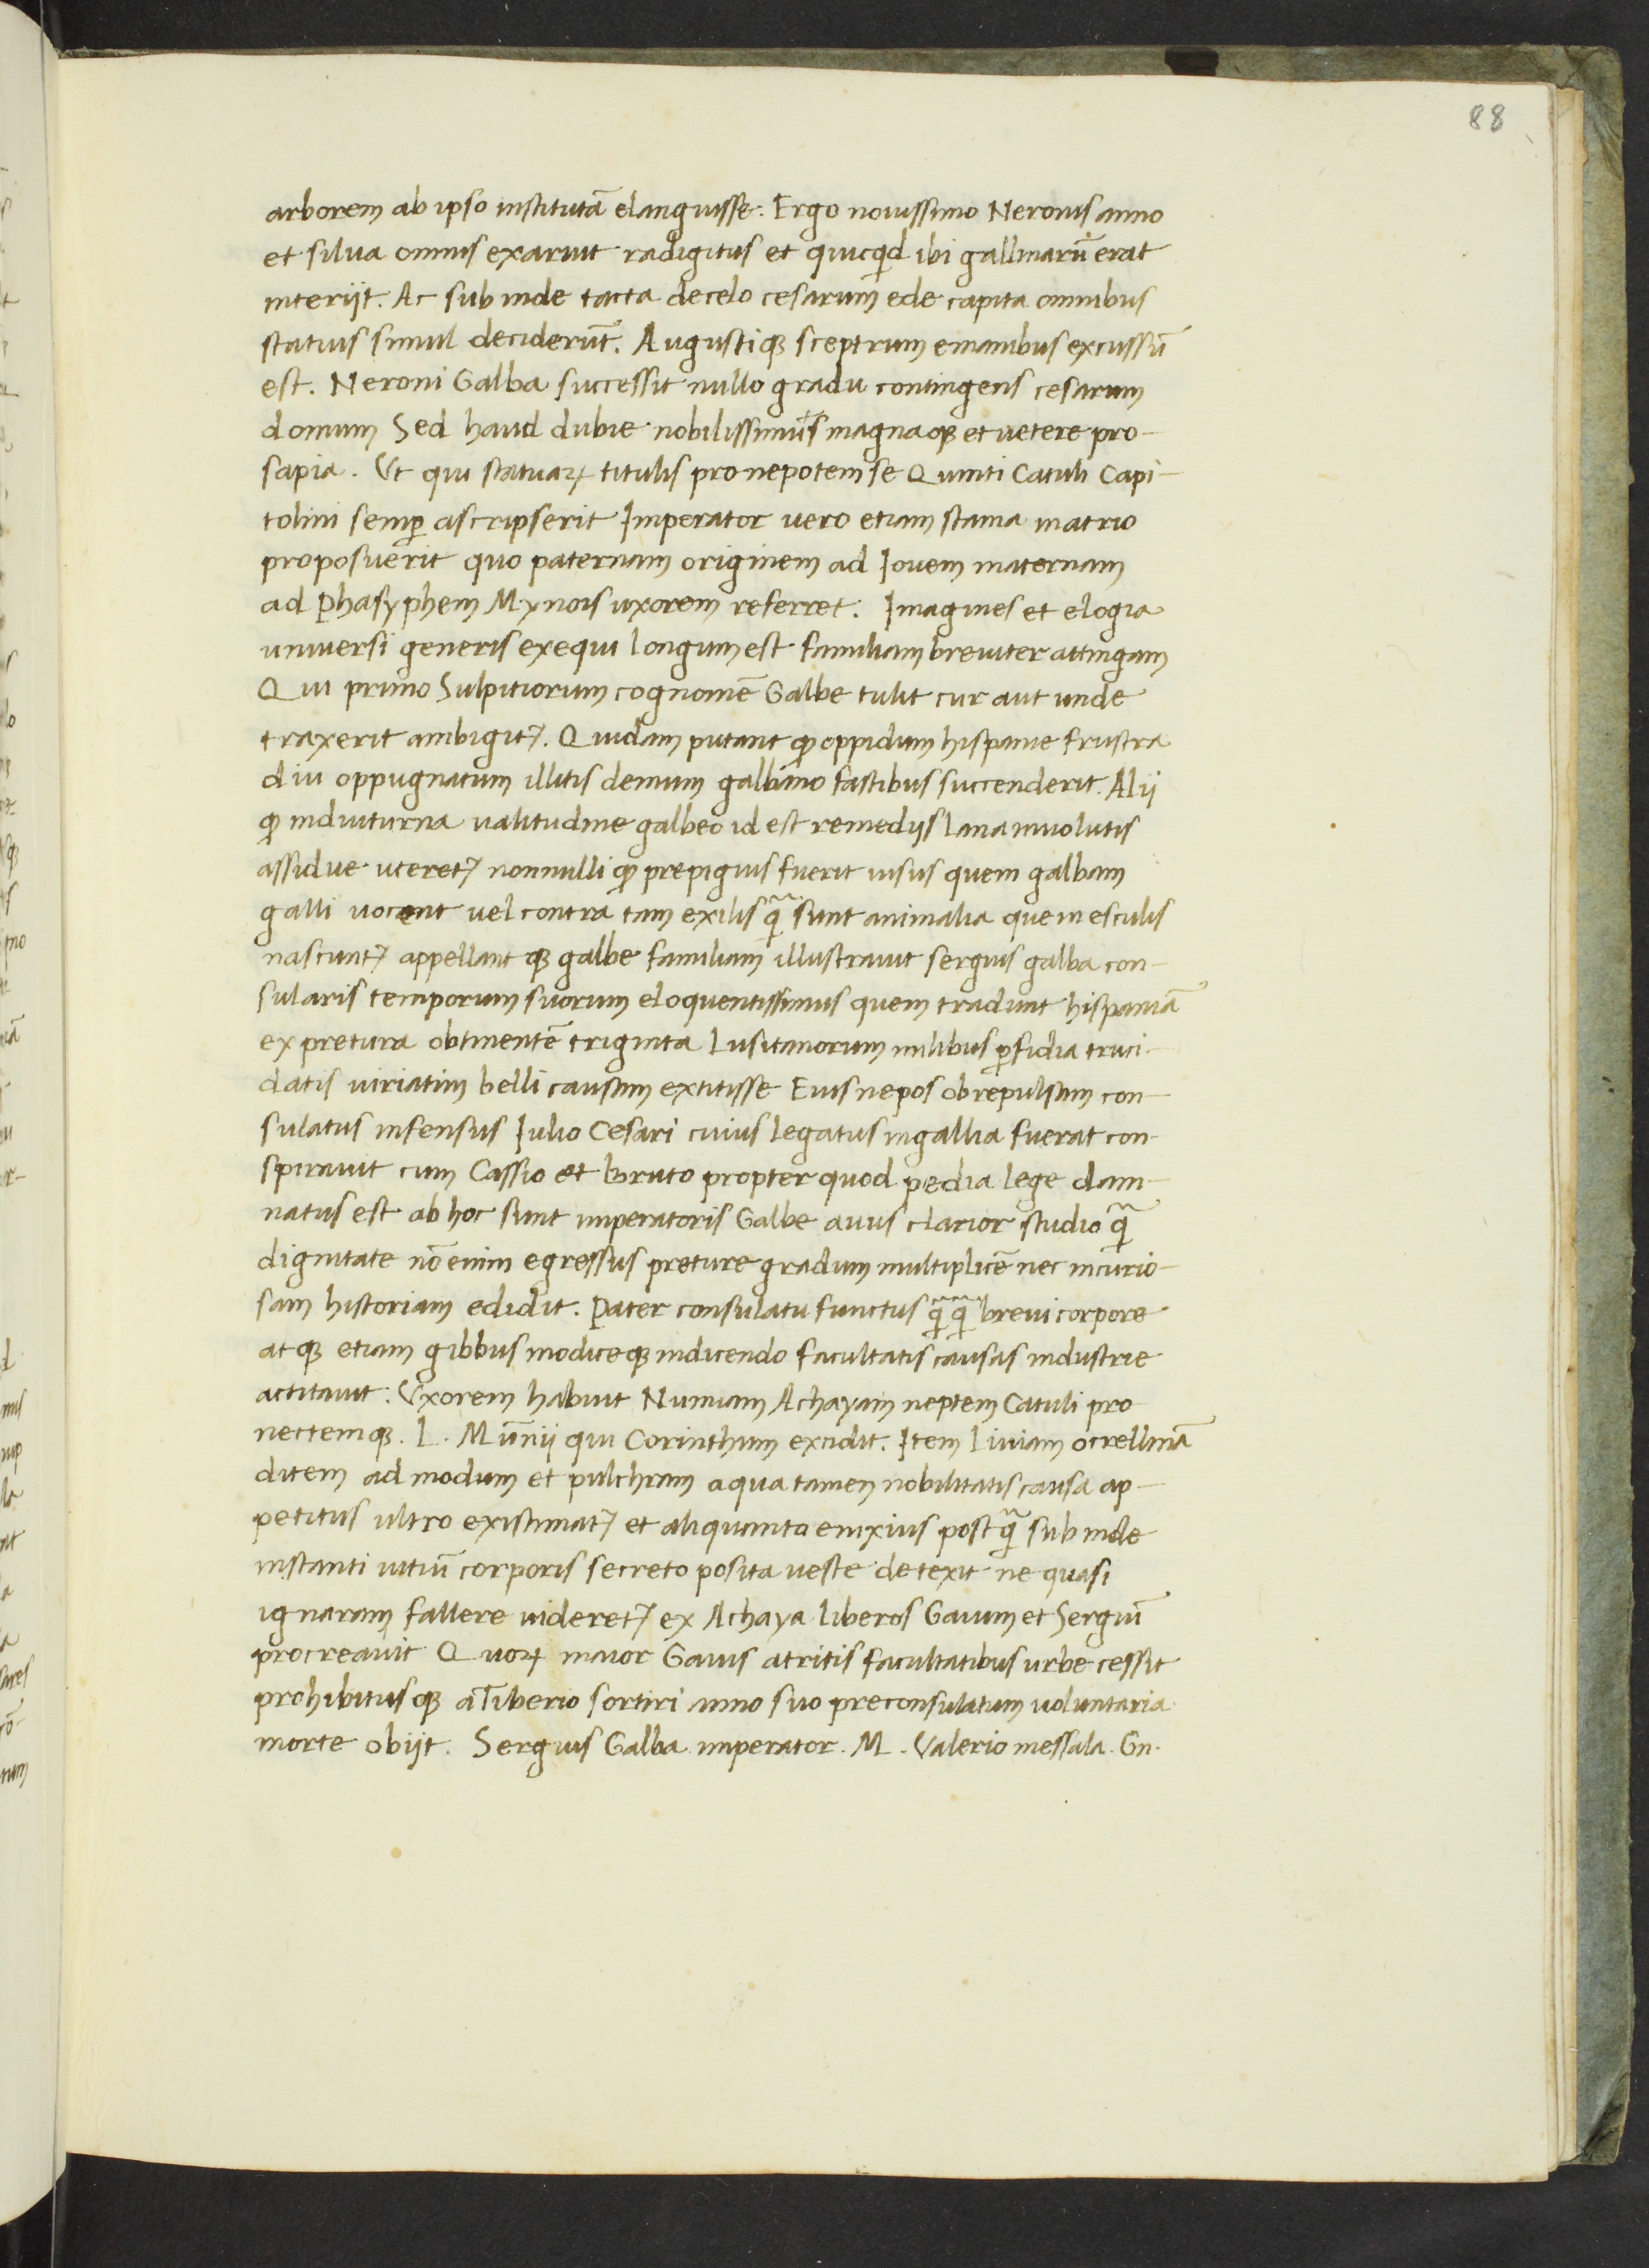 88
arborem ab ipso institutā elanguisse. Ergo nouissimo Neronis anno
et silua omnis exaruit radigitus et quicqͥd ibi gallinarū erat
interijt. Ac sub inde tacta de celo cesarum ede capita omnibus
statuis simul deciderūt. Augustiqꝫ sceptrum emanibus excussū
est. Neroni Galba successit nullo gradu contingens cesarum
domum Sed haud dubie nobilissimus magnaqꝫ et uetere pro-
sapia. Vt qui statuaꝝ titulis pro nepotem se Quinti Catuli Capi-
tolini semꝑ ascripserit Imperator uero etiam stama matrio
proposuerit quo paternam originem ad Iouem maternam
ad Phasyphem Mynois uxorem referret. Imagines et elogia
uniuersi generis exequi longum est familiam breuiter attingam
Qui primo Sulpitiorum cognomē Galbe tulit cur aut unde
traxerit ambigit᷑. Quidam putant ꝙ oppidum hispanie frustra
diu oppugnatum illitis demum galbano fastibus succenderit. Alij
ꝙ indiuturna ualitudine galbeo id est remedijs lana inuolutis
assidue uteret᷑ nonnulli ꝙ prepiguis fuerit uisus quem galbam
galli uocent uel contra tam exilis qᷓ sunt animalia que in esculis
nascunt᷑ appellantqꝫ galbe familiam illustrauit sergius galba con-
sularis temporum suorum eloquentissimus quem tradunt hispaniā
ex pretura obtinentē triginta Lusitanorum milibus ꝑfidia truci-
datis uiriatim belli causam extitisse Eius nepos ob repulsam con-
sulatus infensus Iulio Cesari cuius legatus ingallia fuerat con-
spirauit cum Cassio et Bruto propter quod pedia lege dam-
natus est ab hoc sunt imperatoris Galbe auus clarior studio qᷓ
dignitate nō enim egressus preture gradum multiplicē nec incurio-
sam historiam edidit. Pater consulatu functus qᷓqᷓ breui corpore
atqꝫ etiam gibbus modiceqꝫ indicendo facultatis causas industrie
actitauit: Vxorem habuit Numiam Achayam neptem Catuli pro
nectemqꝫ. L. Mūnij qui Corinthum excidit. Item Liuiam ocrellinā
ditem ad modum et pulchram aqua tamen nobilitatis causa ap-
petitus ultro existimat᷑ et aliquanto enixius postqᷓ sub inde
instanti uitiū corporis secreto posita ueste detexit ne quasi
ignaram fallere uideret᷑ ex Achaya liberos Gaium et Sergiū
procreauit Quoꝝ maior Gaius atritis facultatibus urbe cessit
prohibitusqꝫ aTiberio sortiri anno suo preconsulatum uoluntaria
morte obijt. Sergius Galba imperator. M. Valerio messala. Gn.